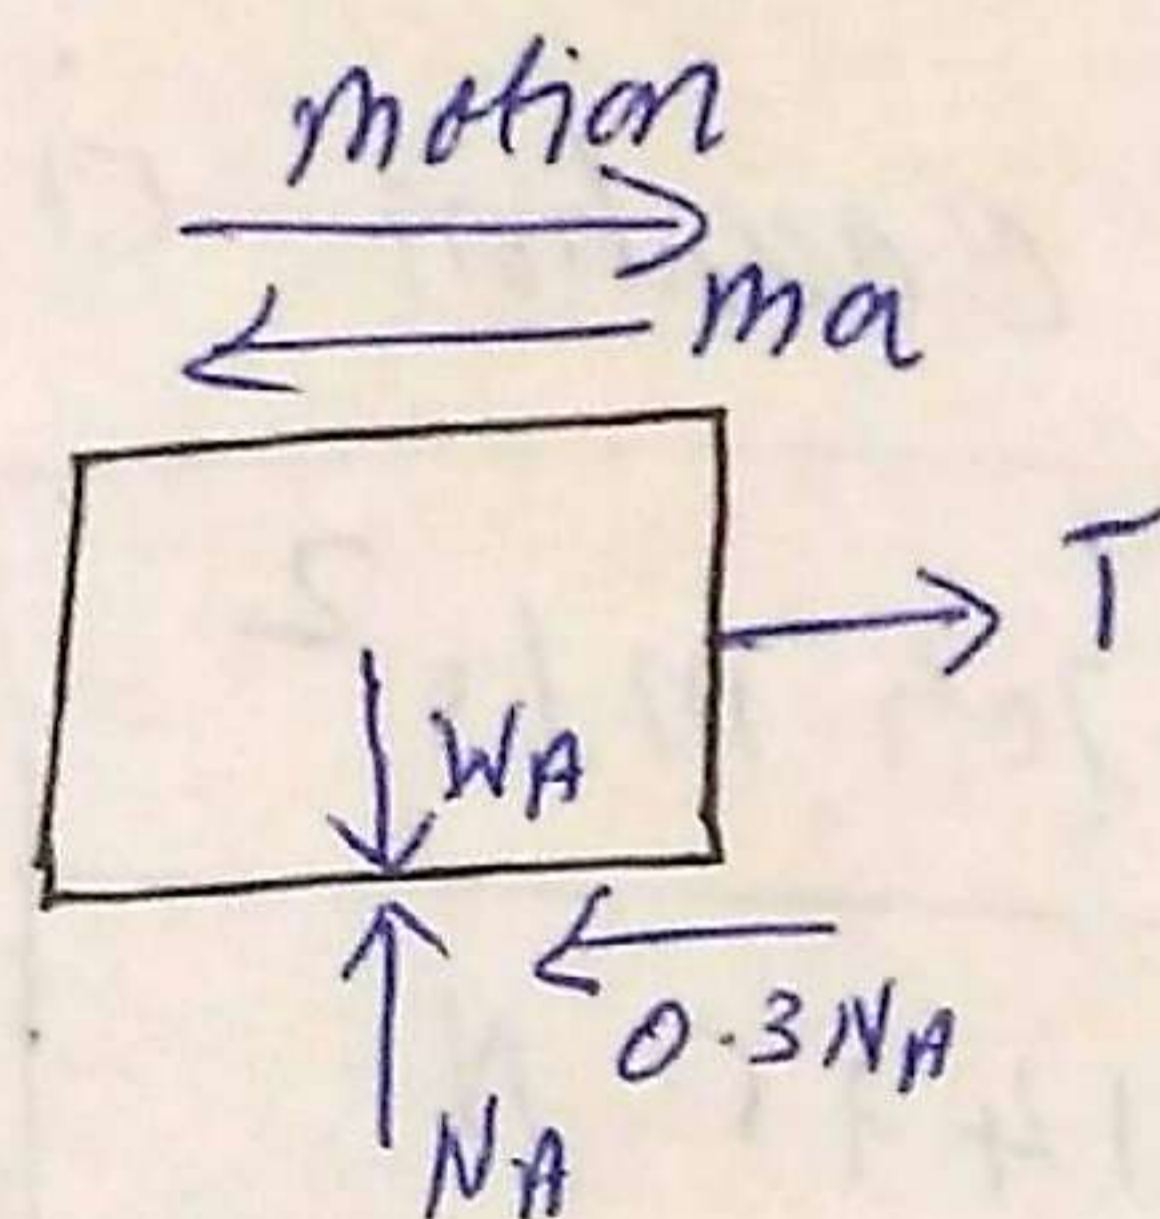 motion
ma
T
WA
0.3NA
NA